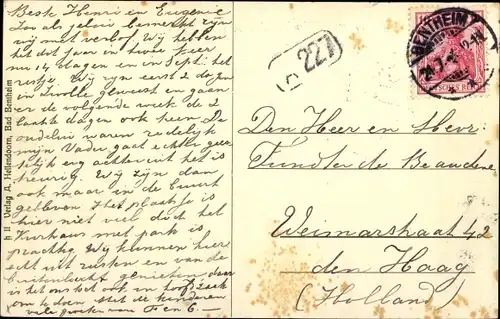 Beste Henri en Eugenie
Zoo als jelui bemerkt zijn
wij met verlof. Wij hebben
het dit jaar in twee keer
nu 14 dagen en in Sept. het
restje. Wij zijn eerst 2 dagen
in Zwolle geweest en gaan
er de volgende week de 2
laatste dagen ook heen. De
oudelui waren redelijk
mijn Vader gaat echter geen
achteruit het is
treurig. Wij zijn dan
ook maar in de buurt
gebleven. Het plaatsje is
hier niet veel doch het
Kurhaus met park is
prachtig. Wij kunnen hier
echt uit rusten en van de
buitenlucht genieten daar
is het ons ook in hoofdzaak
om te doen. de kinderen
vele groeten van F en C.
h II Verlag A. Hellendoorn, Bad Bentheim
227
BENTHEIM
DEUTSCHES REICH
Den Heer en Mevr.
de Beaudene
Weimarstraat 42
den Haag
(Holland)